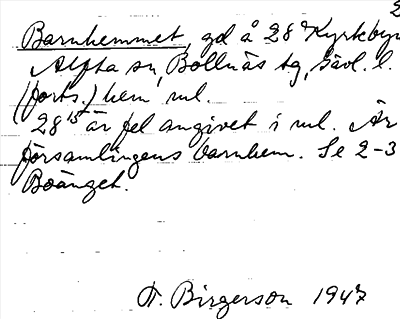 2
Barnhemmet, gd å 28 Kyrkbyn
Alfta sn, Bollnäs tg, Gävl. l.
(forts.) hem ml.
28¹⁵ är fel angivet i ml. Är
församlingens barnhem. Se 2-3
Boänget.
F. Birgerson 1947